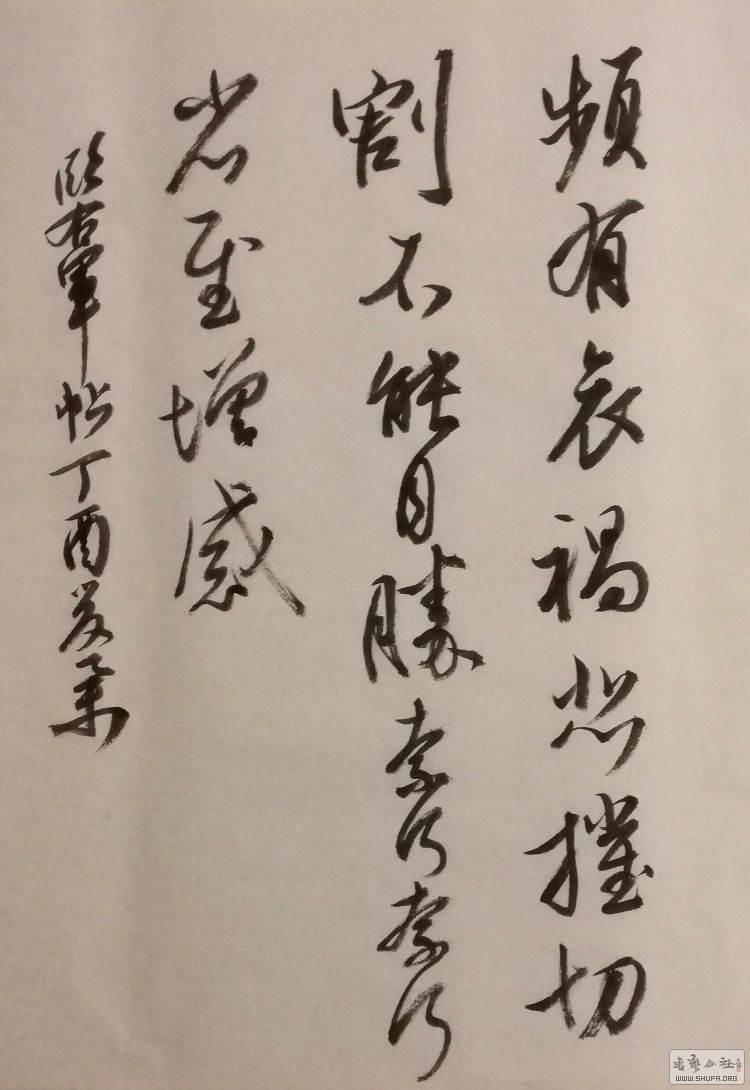 頻有哀禍悲摧切
割不能自勝奈何奈何
省慰增感
臨右軍帖丁酉
書藝公社
WWW.SHUFA.ORG